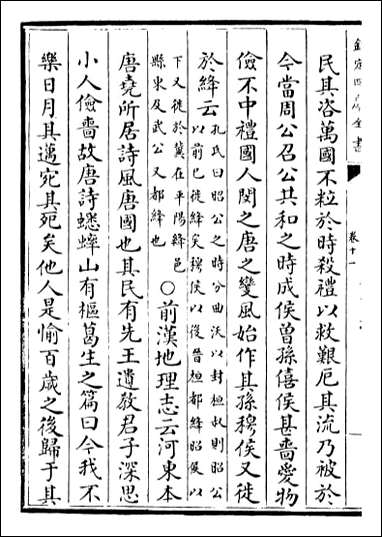 欽定四庫全書
卷十一
民其咨萬國不粒於時殺禮以救艱厄其流乃被於
今當周公召公共和之時成侯曾孫僖侯甚嗇愛物
儉不中禮國人閔之唐之變風始作其孫穆侯又徙
於絳云孔氏曰昭公之時分曲沃以封桓叔則昭公
以前已徙絳矣穆侯以後晉桓都絳昭侯以
下又徙於冀在平陽絳邑
縣東及武公又都絳也
○前漢地理志云河東本
唐堯所居詩風唐國也其民有先王遺教君子深思
小人儉嗇故唐詩蟋蟀山有樞葛生之篇曰今我不
樂日月其邁宛其死矣他人是愉百歲之後歸于其